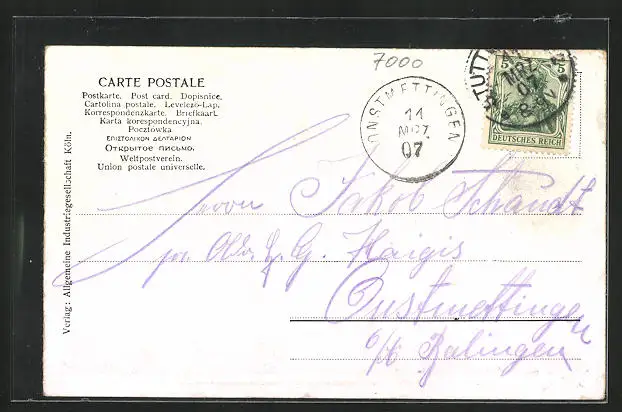 7000
CARTE POSTALE
Postkarte. Post card. Dopisnice.
Cartolina postale. Levelező-Lap.
Korrespondenzkarte. Briefkaart.
Karta korespondencyjna.
Pocztówka
ΕΠΙΣΤΟΛΙΚΟΝ ΔΕΛΤΑΡΙΟΝ
Открытое письмо.
Weltpostverein.
Union postale universelle.
ONSTMETTINGEN
11
MRZ
07
TUTT
MRZ
07
5 5
DEUTSCHES REICH
Verlag: Allgemeine Industriegesellschaft Köln.
Herrn Jakob Schaudt
pr. Adr. G. Haigis
Onstmettingen
o/A Balingen